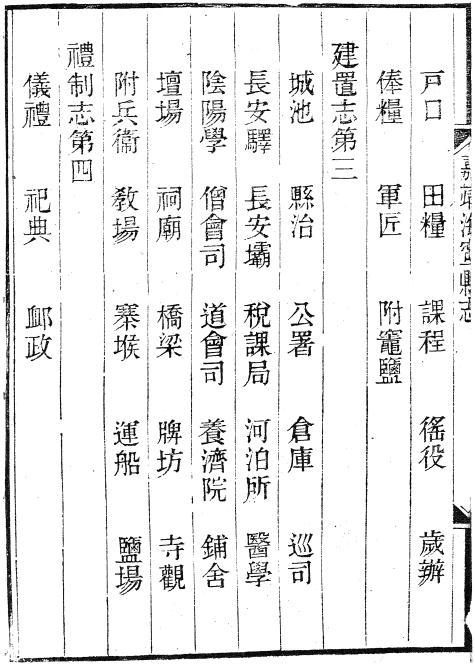 嘉靖海寧縣志
戸口 田糧 課程 徭役 歲辦
俸糧 軍匠 附竈鹽
建置志第三
城池 縣治 公署 倉庫 巡司
長安驛 長安壩 稅課局 河泊所 醫學
陰陽學 僧會司 道會司 養濟院 鋪舍
壇場 祠廟 橋梁 牌坊 寺觀
附兵衞 敎場 寨堠 運船 鹽場
禮制志第四
儀禮 祀典 䘏政